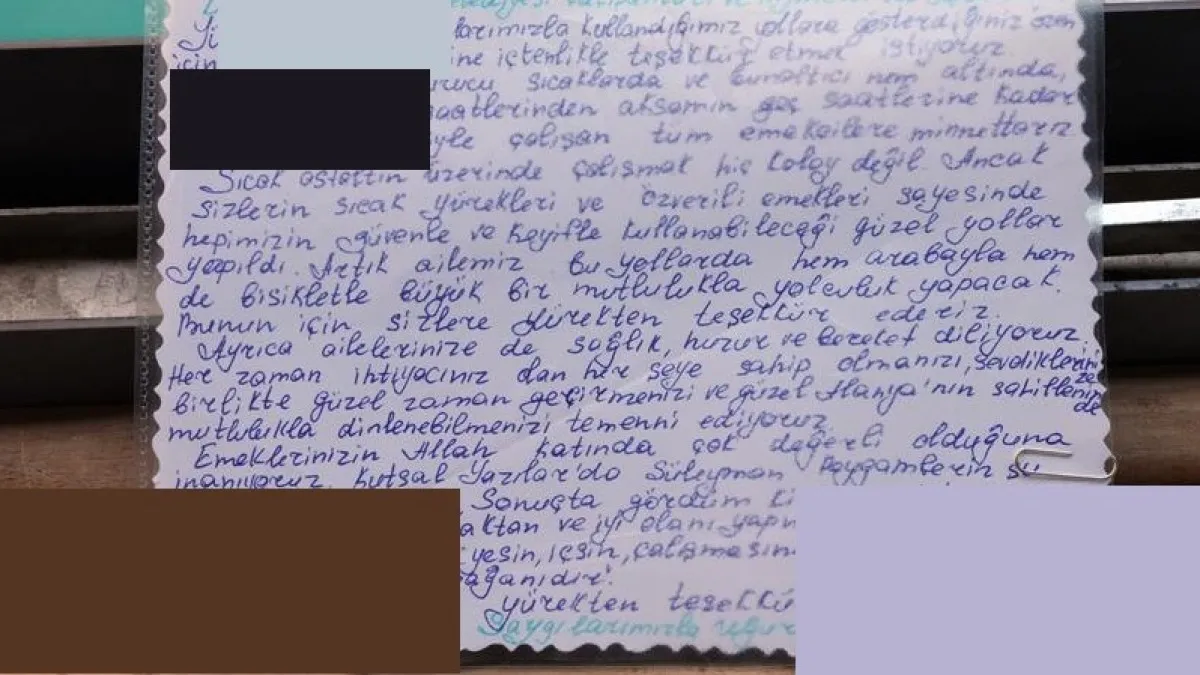 Yi
larımızla kullandığımız yollara gösterdiğiniz özen
için ine içtenlikle teşekkür etmek istiyoruz.
urucu sıcaklarda ve bunaltıcı nem altında,
saatlerinden akşamın geç saatlerine kadar
iyle çalışan tüm emekçilere minnettarız
Sıcak asfaltın üzerinde çalışmak hiç kolay değil. Ancak
sizlerin sıcak yürekleri ve özverili emekleri sayesinde
hepimizin güvenle ve keyifle kullanabileceği güzel yollar
yapıldı. Artık ailemiz bu yollarda hem arabayla hem
de bisikletle büyük bir mutlulukla yolculuk yapacak.
Bunun için sizlere yürekten teşekkür ederiz.
Ayrıca ailelerinize de sağlık, huzur ve bereket diliyoruz.
Her zaman ihtiyacınız dan her şeye sahip olmanızı, sevdiklerinizle
birlikte güzel zaman geçirmenizi ve güzel Alanya'nın sahillerinde
mutlulukla dinlenebilmenizi temenni ediyoruz
Emeklerinizin Allah katında çok değerli olduğuna
inanıyoruz. Kutsal Yazılar'da Süleyman Peygamberin şu
Sonuçta gördüm ki
aktan ve iyi olanı yapm
yesin, içsin, çalışmasın
ağanıdır'.
yürekten teşekkü
Saygılarımızla uğur